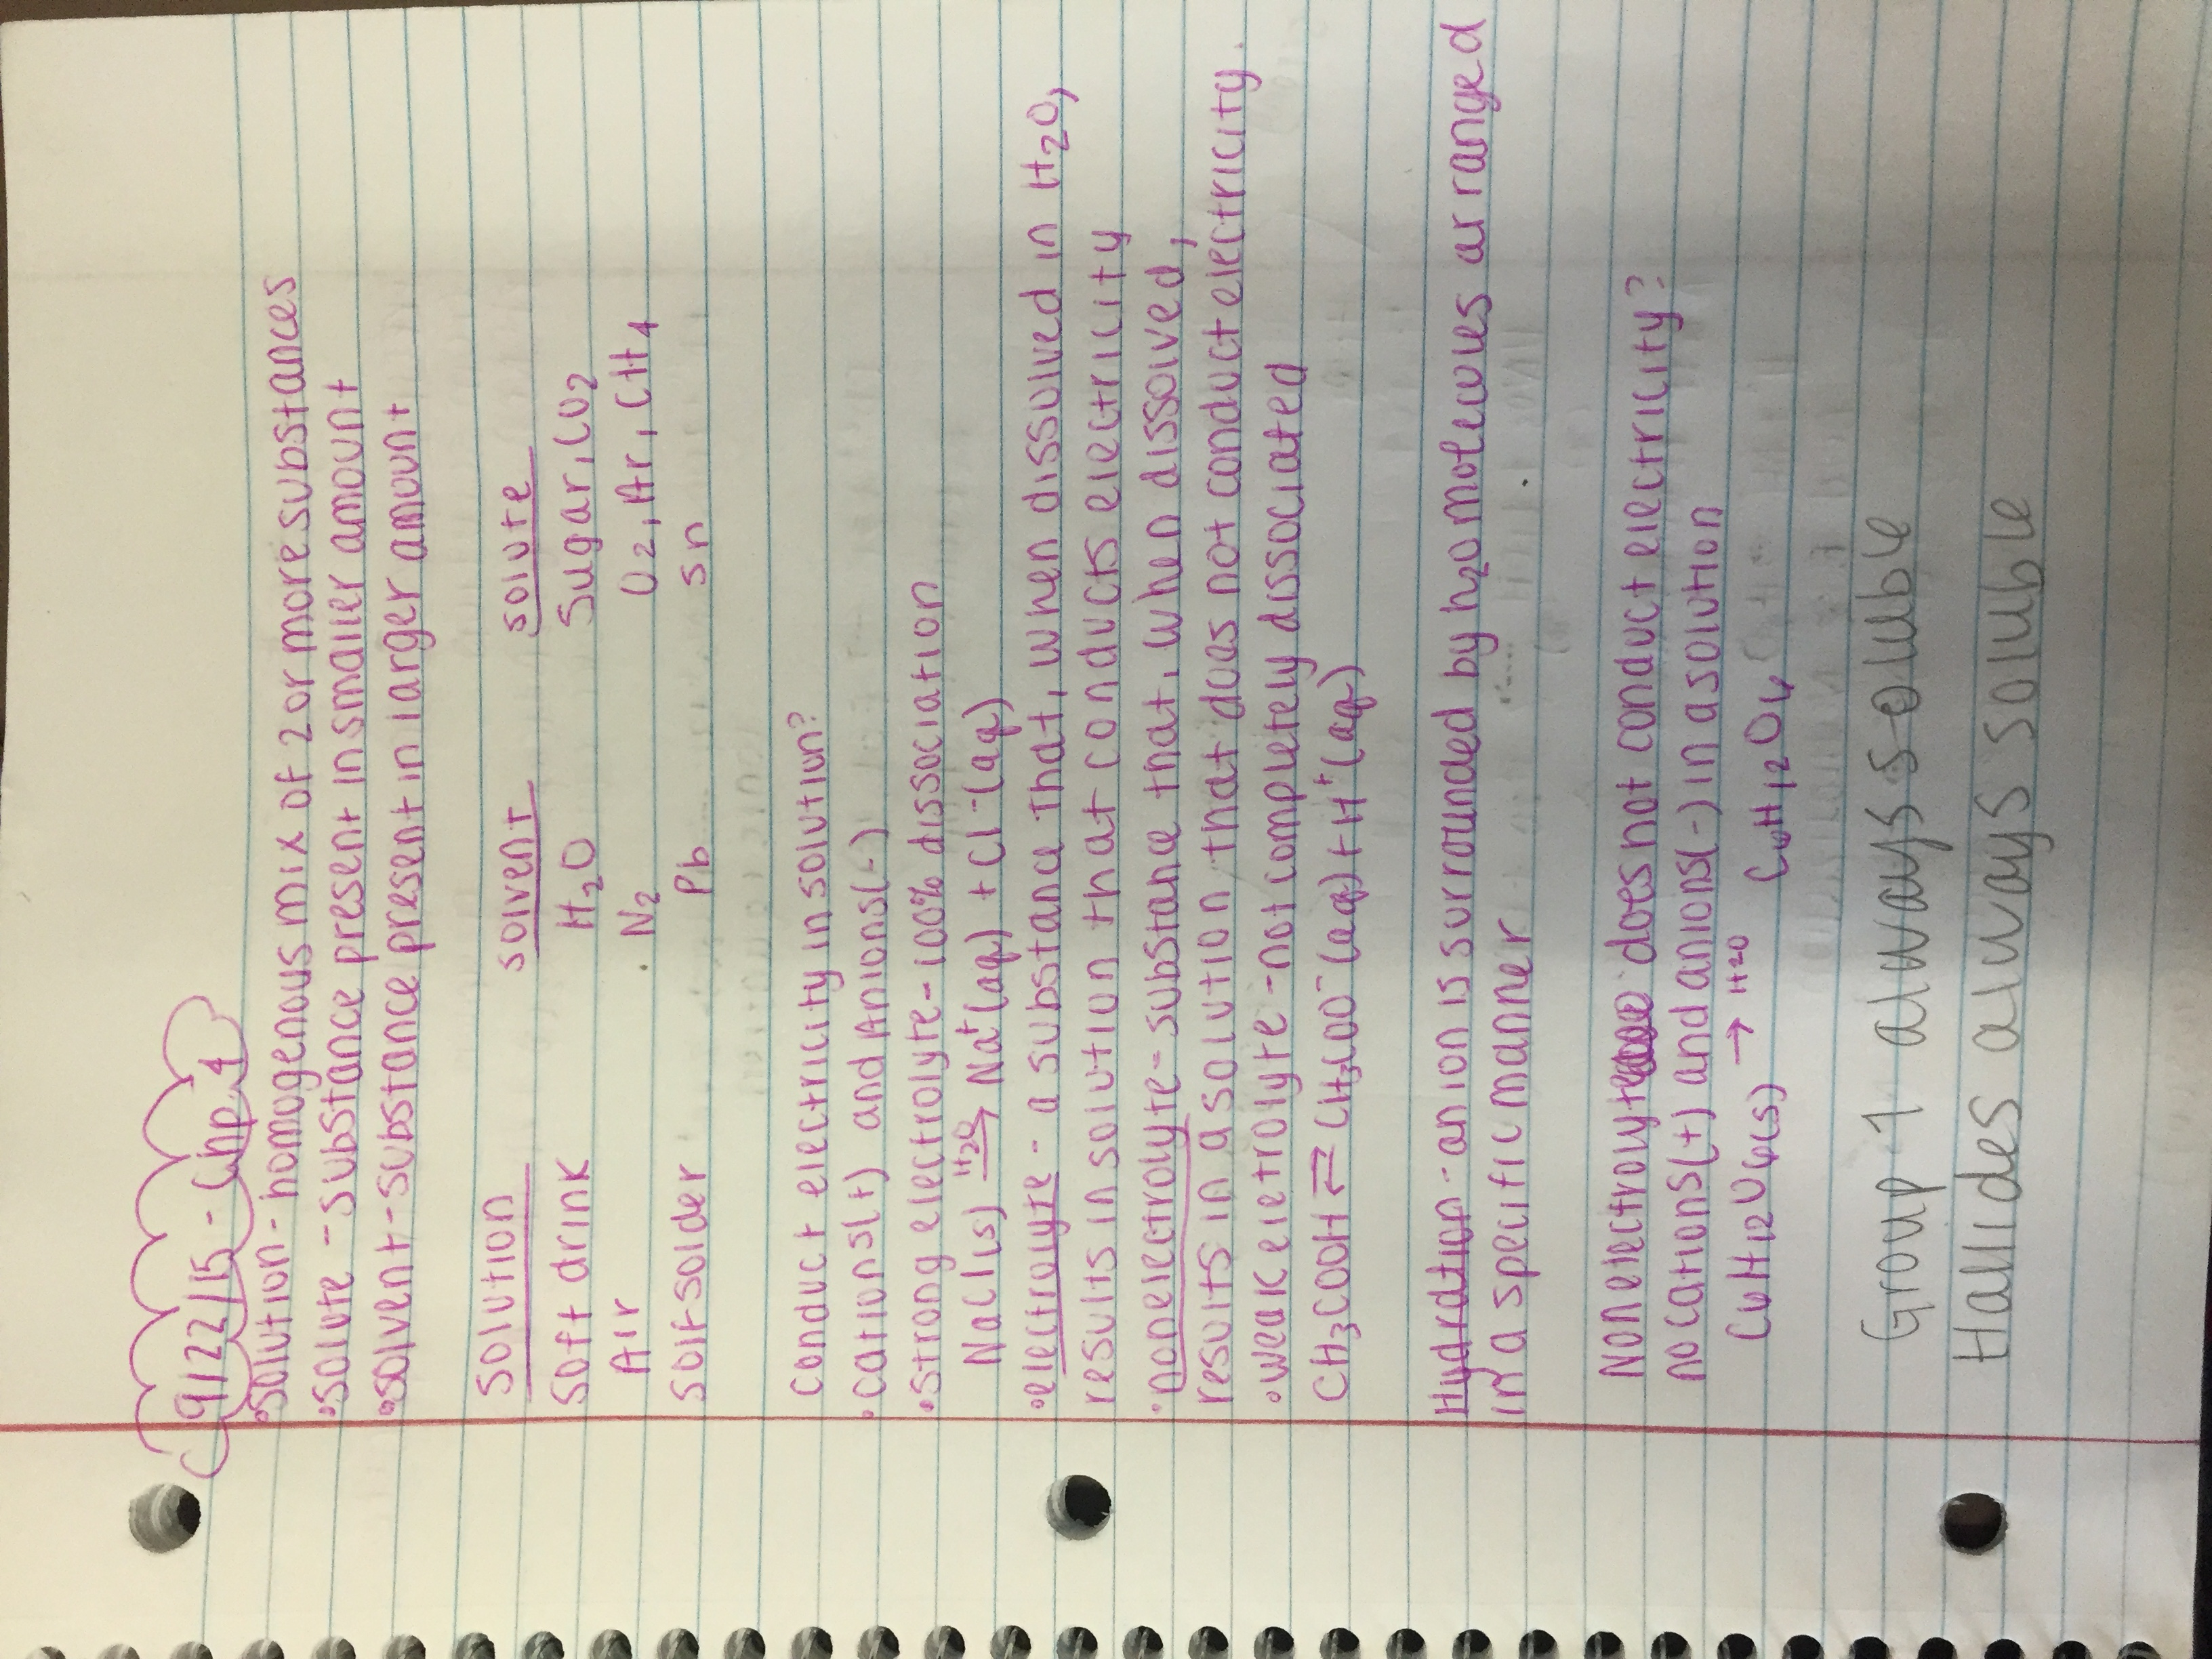 9/22/15 - Chp 4
• Solution - homogenous mix of 2 or more substances
• solute - substance present in smaller amount
• solvent - substance present in larger amount
Solution solvent solute
Soft drink H₂O Sugar, CO₂
Air N₂ O₂, Ar, CH₄
Soft solder Pb Sn
Conduct electricity in solution?
• Cations(+) and Anions(-)
• Strong electrolyte - 100% dissociation
NaCl(s) H₂O→ Na⁺(aq) + Cl⁻(aq)
• electrolyte - a substance that, when dissolved in H₂O,
results in solution that conducts electricity
• nonelectrolyte - substance that, when dissolved,
results in a solution that does not conduct electricity.
• weak eletrolyte - not completely dissociated
CH₃COOH ⇄ CH₃COO⁻(aq) + H⁺(aq)
Hydration - an ion is surrounded by h₂o molecules arranged
in a specific manner
Nonelectrolyte does not conduct electricity?
no cations(+) and anions(-) in a solution
C₆H₁₂O₆(s) → H₂O C₆H₁₂O₆
Group 1 always soluble
Halides always soluble